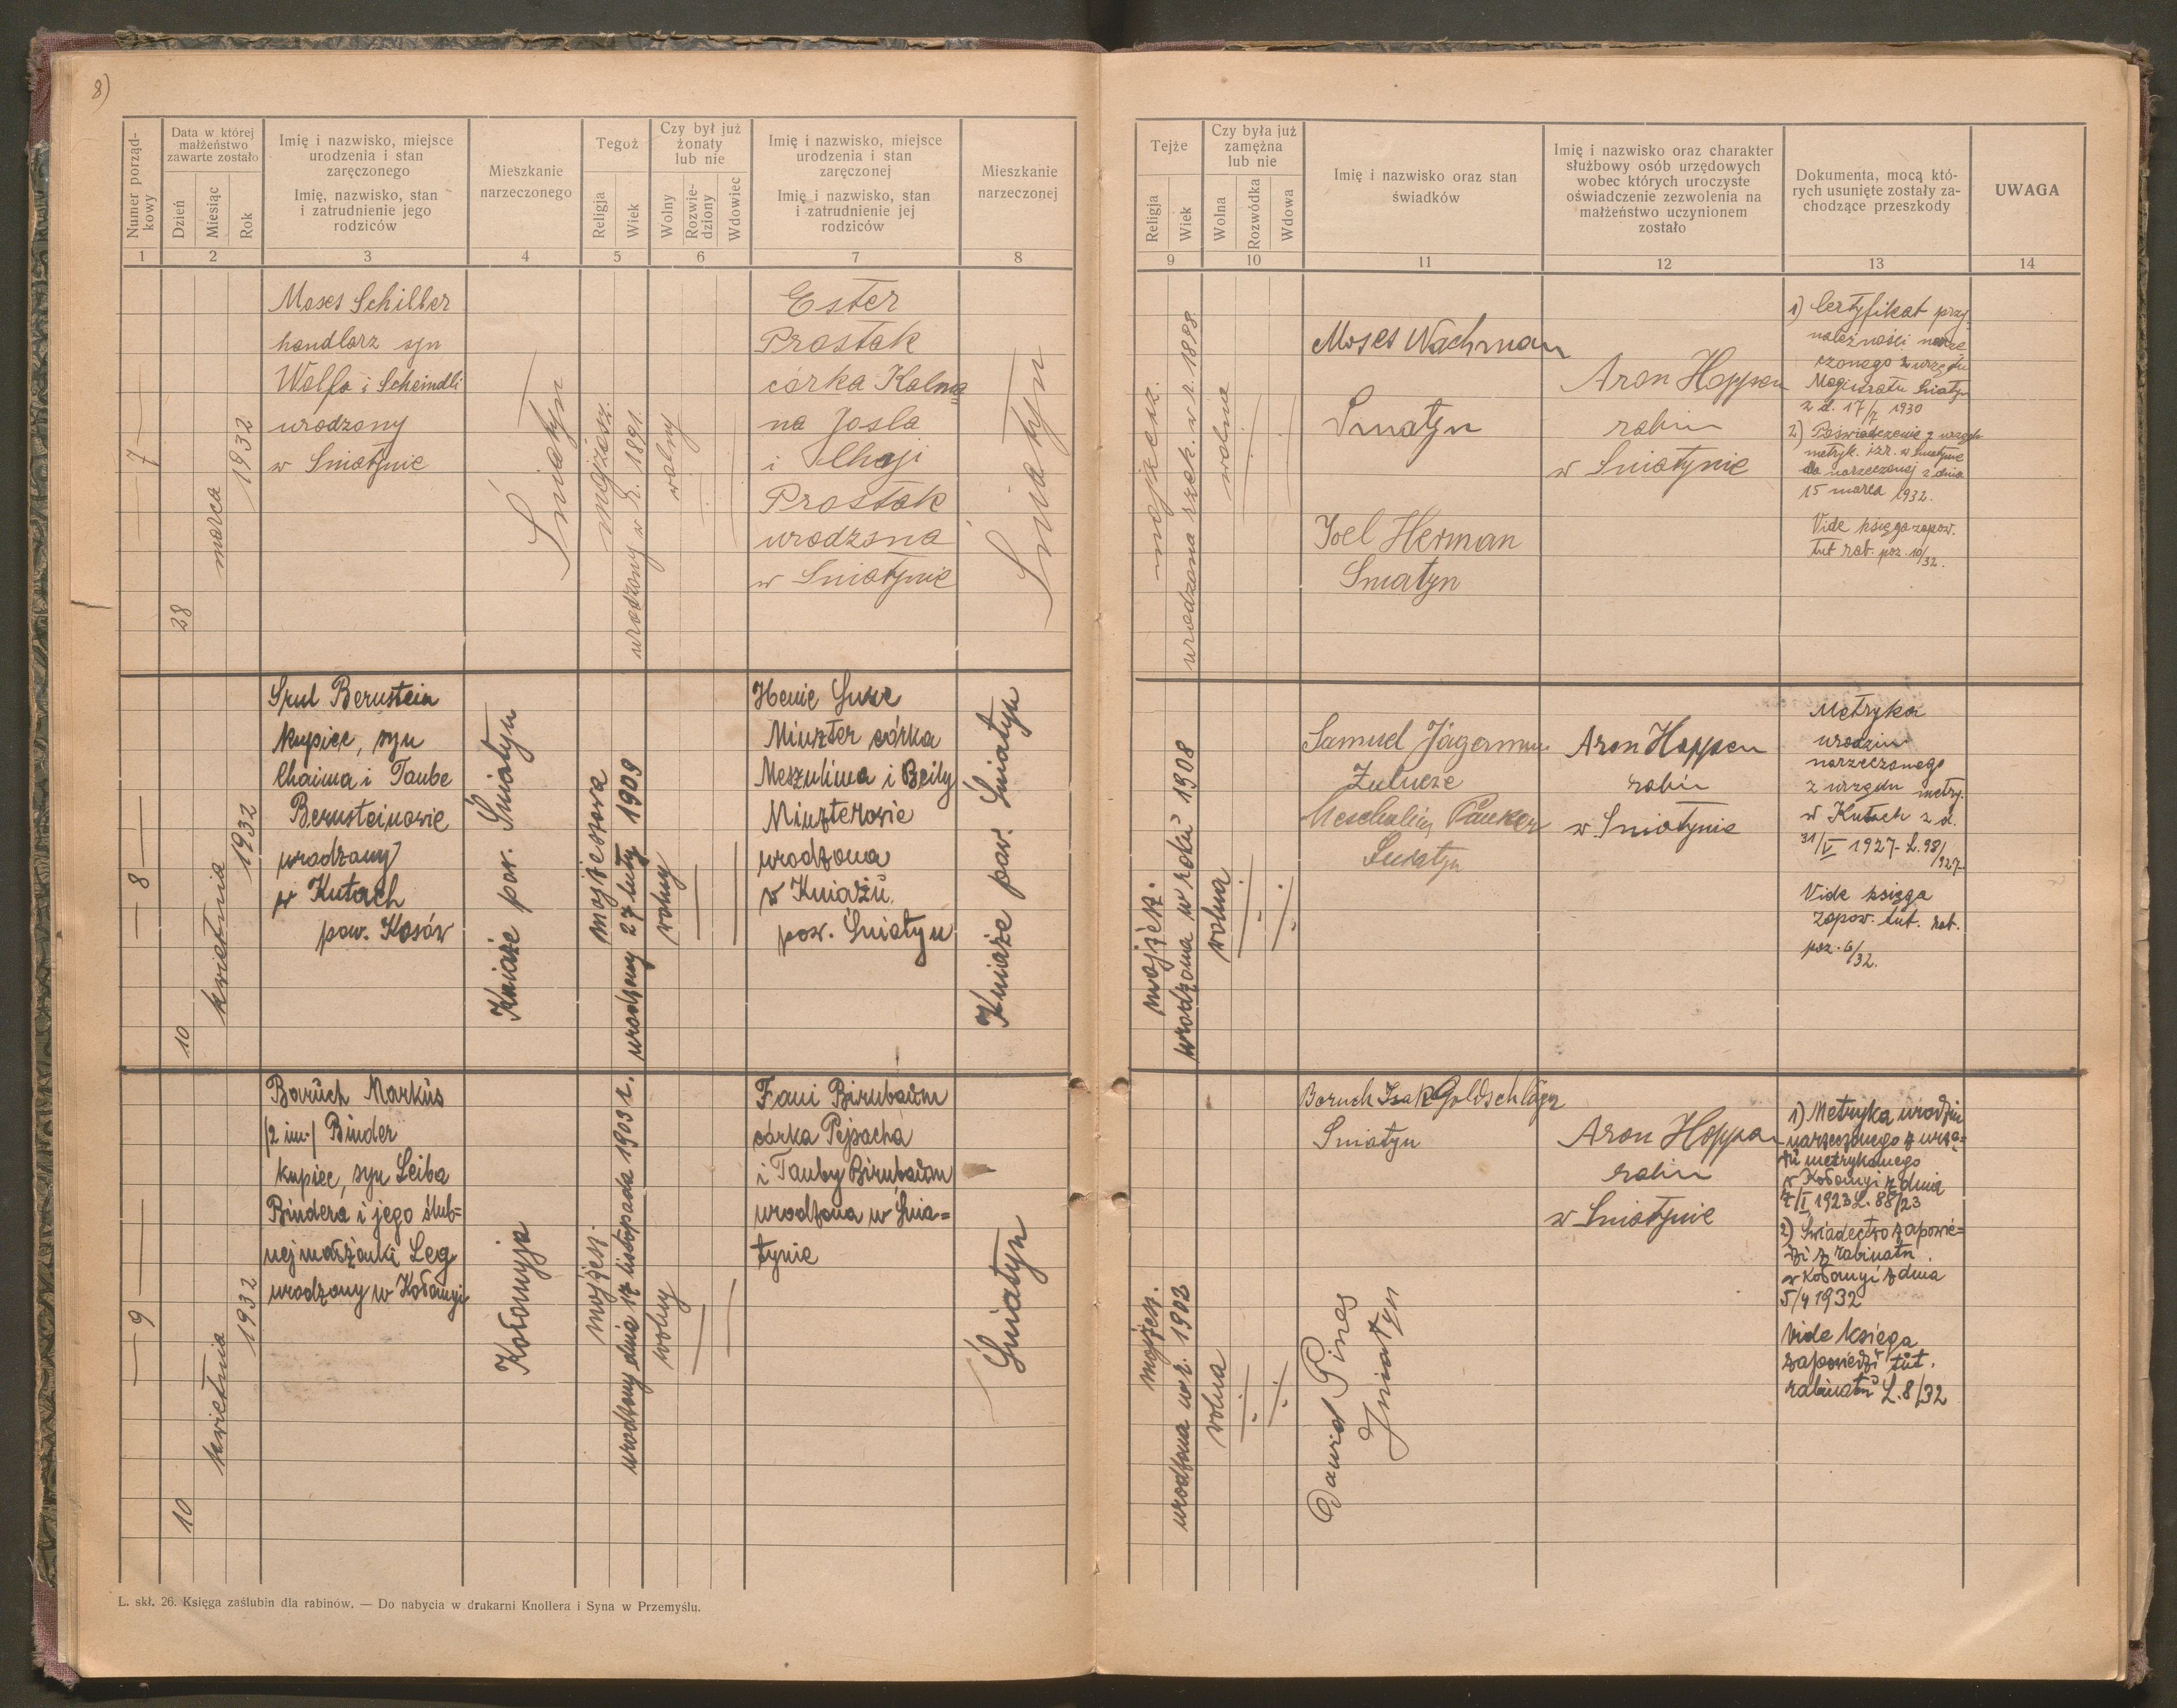 8)
Numer porząd-
kowy
Data w której
małżeństwo
zawarte zostało
Dzień
Miesiąc
Rok
Imię i nazwisko, miejsce
urodzenia i stan
zaręczonego
Imię, nazwisko, stan
i zatrudnienie jego
rodziców
Mieszkanie
narzeczonego
Tegoż
Religja
Wiek
Czy był już
żonaty
lub nie
Wolny
Rozwie-
dziony
Wdowiec
Imię i nazwisko, miejsce
urodzenia i stan
zaręczonej
Imię i nazwisko, stan
i zatrudnienie jej
rodziców
Mieszkanie
narzeczonej
1 2 3 4 5 6 7 8
Tejże
Religja
Wiek
Czy była już
zamężna
lub nie
Wolna
Rozwódka
Wdowa
Imię i nazwisko oraz stan
świadków
Imię i nazwisko oraz charakter
służbowy osób urzędowych
wobec których uroczyste
oświadczenie zezwolenia na
małżeństwo uczynionem
zostało
Dokumenta, mocą któ-
rych usunięte zostały za-
chodzące przeszkody
UWAGA
9 10 11 12 13 14
7
28
marca
1932
Moses Schiller
handlarz syn
Wolfa i Scheindli
urodzony
w Śniatynie
Śniatyn
mojżesz.
urodzony w r. 1891.
wolny
Ester
Prostak
córka Kalma
na Josla
i Chaji
Prostak
urodzona
w Śniatynie
Śniatyn
mojżesz.
urodzona rzek. w r. 1898
wolna
Moses Nachman
Śniatyn
Joel Herman
Sniatyn
Aron Hoppen
rabin
w Śniatynie
1) Certyfikat przy-
należności narze
czonego z urzędu
Magistratu Śniatyn
z d. 17/7 1930
2) Poświadczenie z urzędu
metryk. izr. w Śniatynie
dla narzeczonej z dnia
15 marca 1932.
Vide księga zapow.
tut. rab. poz. 10/32.
8
10
kwietnia
1932
Srul Bernstein
kupiec, syn
Chaima i Taube
Bernsteinowie
urodzony
w Kutach
pow. Kosów
Kniaże pow. Śniatyn
mojżeszowa
urodzony 27 luty 1909
wolny
Henie
Minzter córka
Meszulima i Beily
Minzterowie
urodzona
w Kniażu
pow. Śniatyn
Kniaże pow. Śniatyn
mojżesz.
urodzona w roku 1908
wolna
Samuel Jägerman
Zulucze
Meschulim Pauker
Śniatyn
Aron Hoppen
rabin
w Śniatynie
Metryka
urodzin
narzeczonego
z urzędu metry.
w Kutach z d.
31/V 1927- L. 98/927-
Vide księga
zapow. tut. rab.
poz. 6/32.
9
10
kwietnia
1932
Boruch Markus
/2 im./ Binder
kupiec, syn Leiba
Bindera i jego ślub=
nej małżonki Leg
urodzony w Kołomyi
Kołomyja
mojżesz.
urodzony dnia 17 listopada 1903 r.
wolny
Fani Birnbaum
córka Pejsacha
i Tauby Birnbaum
urodzona w Śnia=
tynie
Śniatyn
mojżesz.
urodzona w r. 1902
wolna
Boruch Izak Goldschläger
Śniatyn
Dawid Pines
Śniatyn
Aron Hoppen
rabin
w Śniatynie
1) Metryka urodzin
narzeczonego z urzę=
du metrykalnego
w Kołomyi z dnia
7/I 1923 L. 88/23
2) Świadectwo zapowie=
dzi z rabinatu
w Kołomyi z dnia
5/4 1932
Vide księga
zapowiedzi tut.
rabinatu L. 8/32
L. skł. 26. Księga zaślubin dla rabinów. — Do nabycia w drukarni Knollera i Syna w Przemyślu.